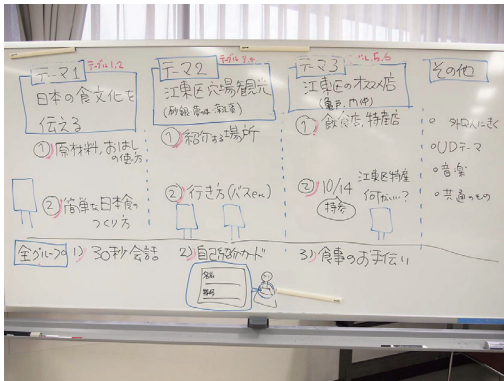 テーマ1 テーブル1,2
日本の食文化を
伝える
① 原材料、おはし
の使方
② 簡単な日本食の
つくり方
テーマ2 テーブル3,4
江東区穴場観光
① 紹介する場所
② 行き方(バスetc)
テーマ3 5,6
江東区のオススメ店
(亀戸、門仲)
① 飲食店、特産店
② 10/14
持参
江東区特産
何がいい?
その他
。外国人にきく
。UDテーマ
。音楽
。共通のもの
全グループ
1) 30秒会話
2) 自己紹介カード
3) 食事のお手伝い
名前